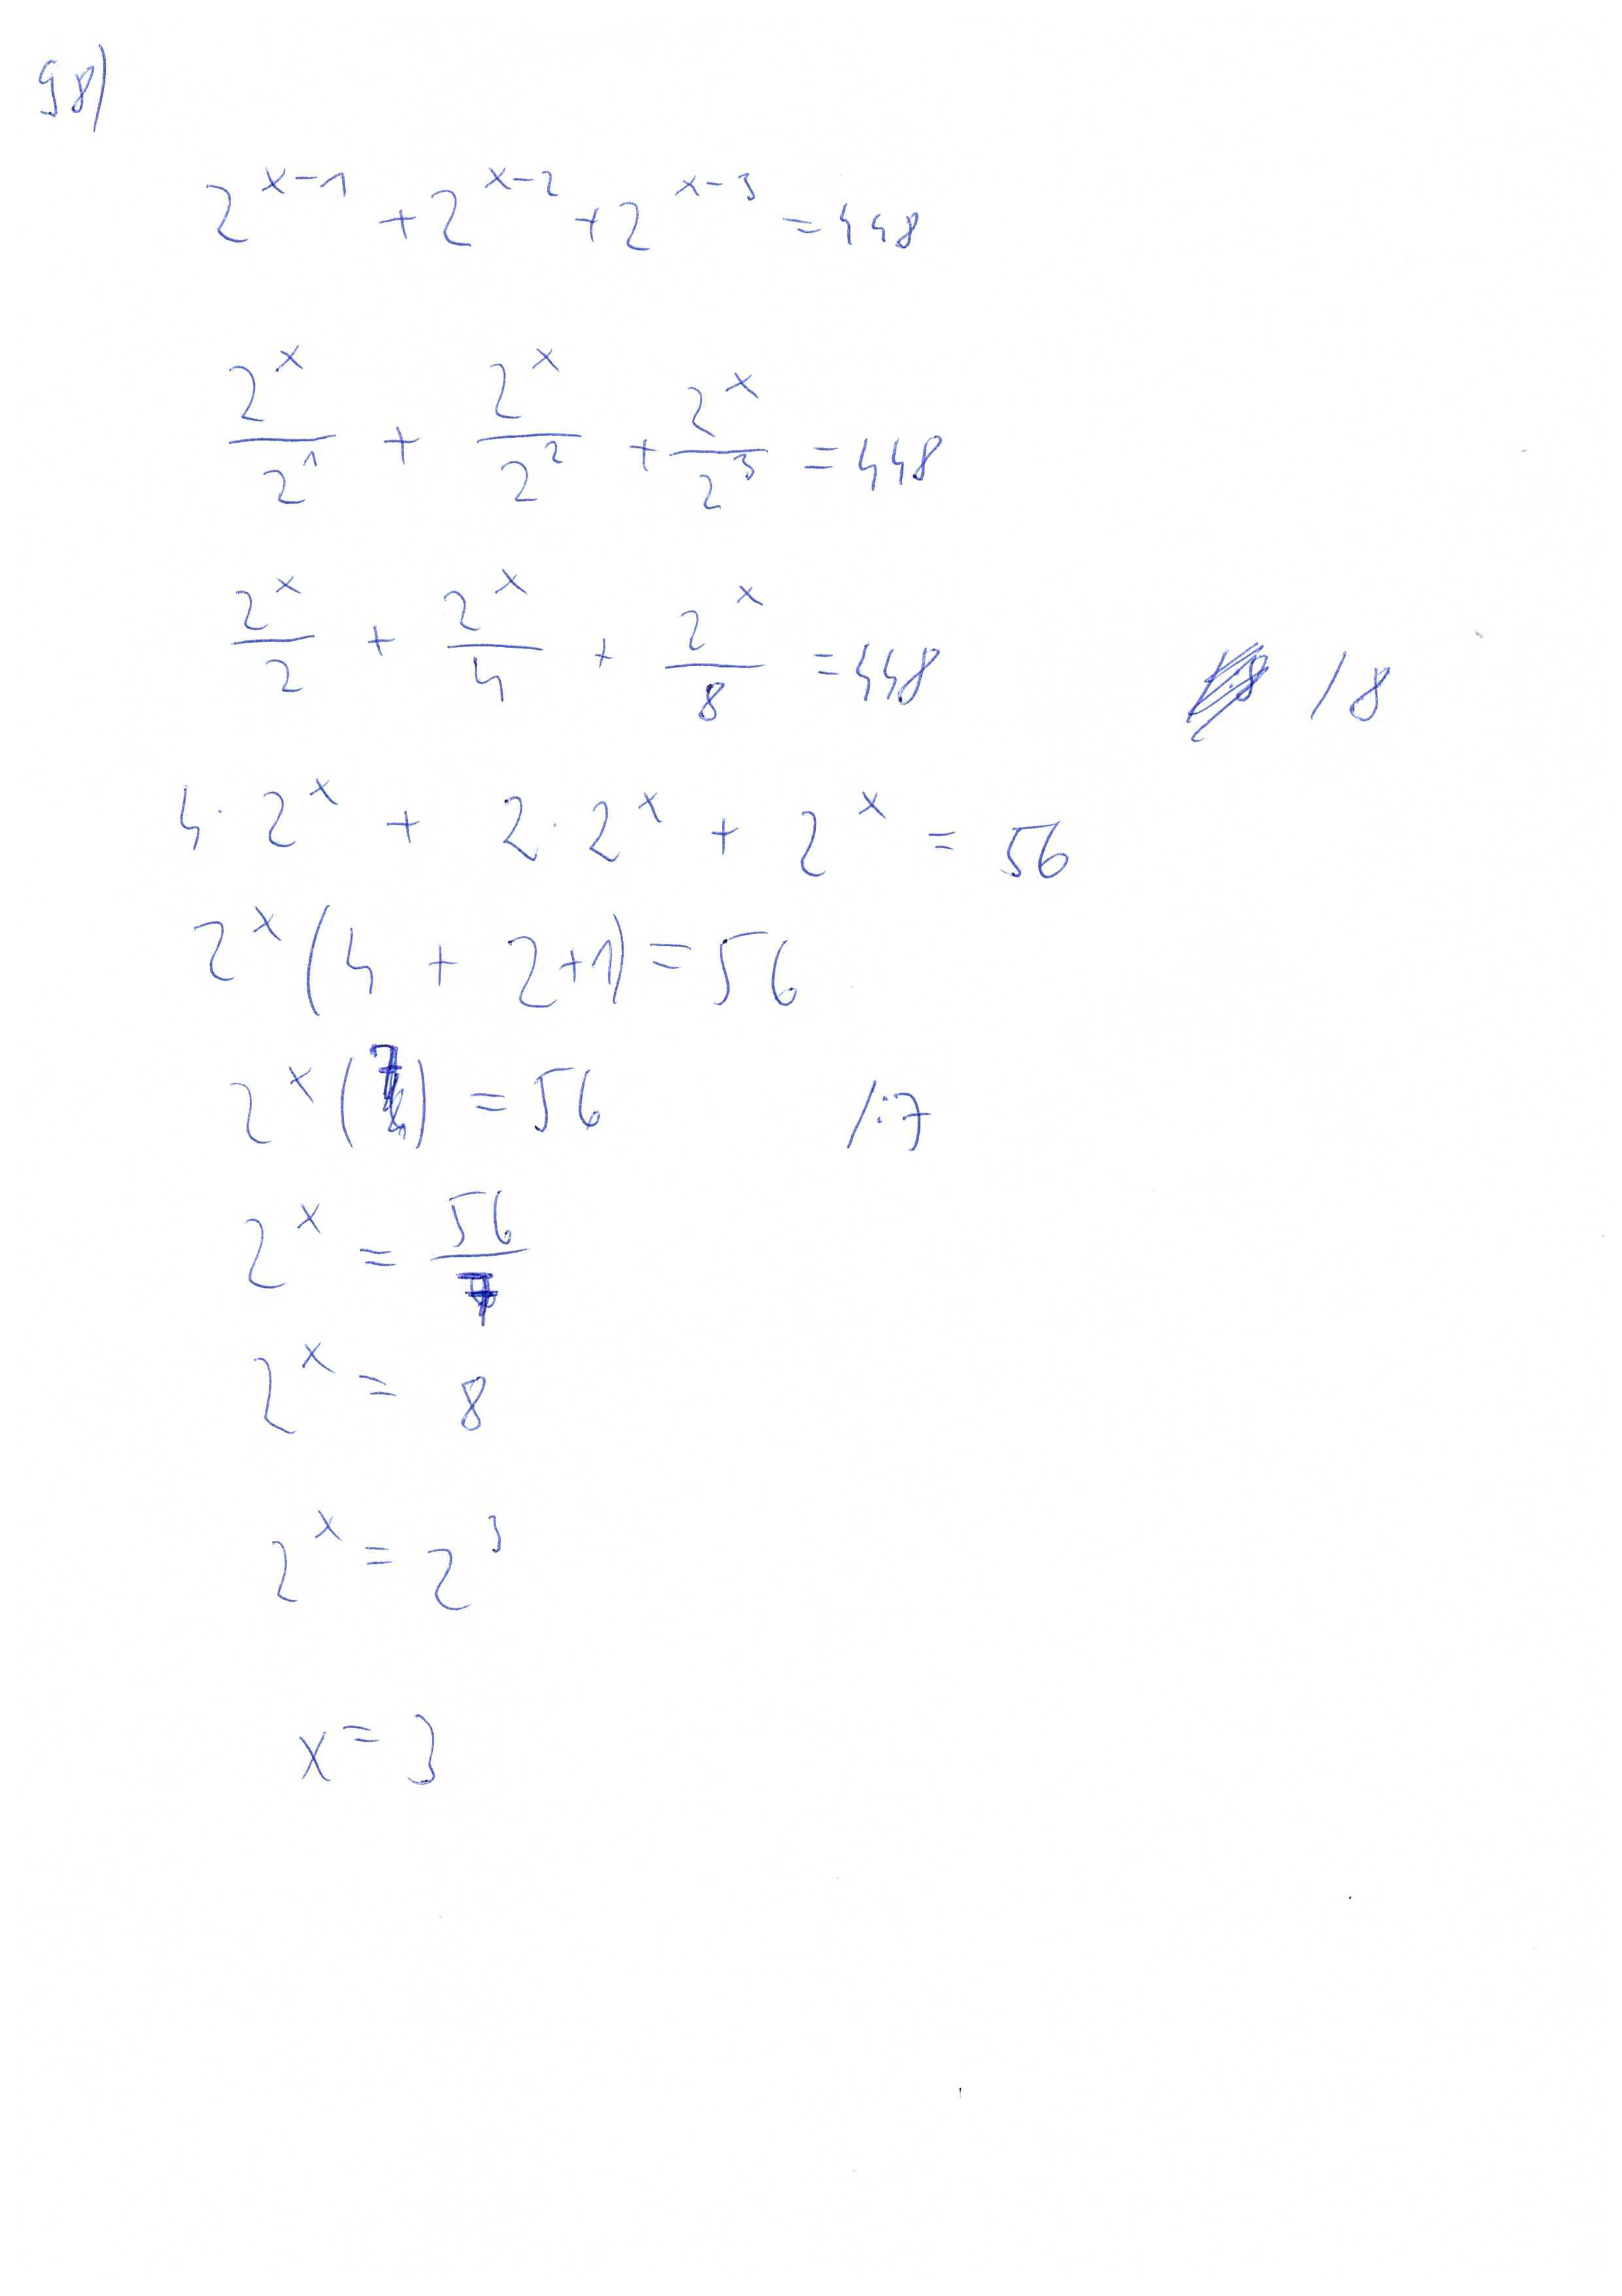 98)
2^{x-1} + 2^{x-2} + 2^{x-3} = 448
\frac{2^x}{2^1} + \frac{2^x}{2^2} + \frac{2^x}{2^3} = 448
\frac{2^x}{2} + \frac{2^x}{4} + \frac{2^x}{8} = 448 / 8
4 \cdot 2^x + 2 \cdot 2^x + 2^x = 56
2^x (4 + 2 + 1) = 56
2^x (7) = 56 /:7
2^x = \frac{56}{7}
2^x = 8
2^x = 2^3
x = 3